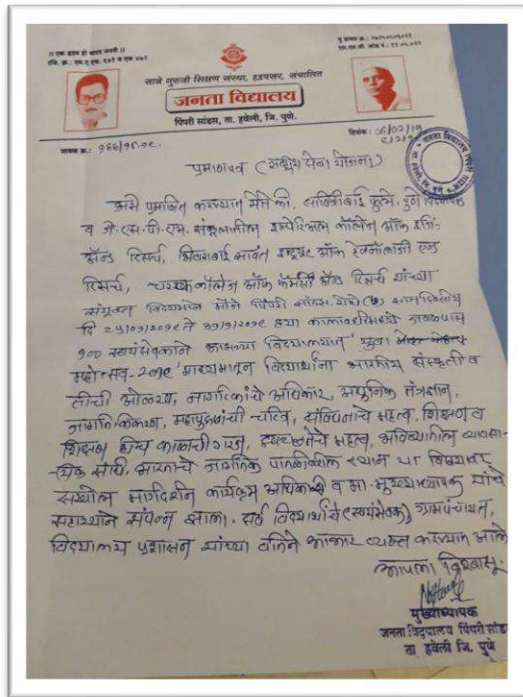 ।। एक हृदय हो भारत जननी ।।
साने गुरुजी शिक्षण संस्था, हडपसर, संचालित
जनता विद्यालय
पिंपरी सांडस, ता. हवेली, जि. पुणे.
जावक क्र.: १६६/१८.१९
दिनांक: 06/02/19
प्रमाणपत्र (राष्ट्रीय सेवा योजना)
असे प्रमाणित करण्यात येते की, सावित्रीबाई फुले, पुणे विद्यापीठ
व जे. एस. पी. एम. संकुलातील इम्पेरिअल कॉलेज ऑफ इंजि.
अँन्ड रिसर्च, भिवराबाई सावंत ऑफ टेक्नोलॉजी एन्ड
रिसर्च, कॉलेज ऑफ कॉमर्स अँन्ड रिसर्च यांच्या
संयुक्त विद्यमाने मौजे पिंपरी सांडस येथे दिवसीय
दि २५/०१/२०१९ ते ३१/१/२०१९ ह्या कालावधीमध्ये जवळपास
१०० स्वयंसेवकाने आमच्या विद्यालयात 'युवा
महोत्सव-२०१९' माध्यमातून विद्यार्थांना भारतीय संस्कृती व
तीची ओळख, नागरिकांचे अधिकार, आधुनिक तंत्रज्ञान,
जागतिकिकरण, महापुरुषांची चरित्र, संविधानाचे महत्व, शिक्षण व
शिक्षण हीच काळाची गरज, स्वच्छतेचे महत्व, भविष्यातील व्यावसा-
-यिक संधी, भारताचे जागतिक पातळीवरील स्थान या विषयावर
सखोल मार्गदर्शन कार्यक्रम अधिकारी व मा. मुख्याध्यापक यांचे
सहाय्याने संपन्न झाला. सर्व विद्यार्थांचे (स्वयंसेवक) ग्रामपंचायत,
विद्यालय प्रशासन यांच्या वतिने आभार व्यक्त करण्यात आले
आपला विश्वासू.
मुख्याध्यापक
जनता विद्यालय पिंपरी सांडस
ता. हवेली जि. पुणे